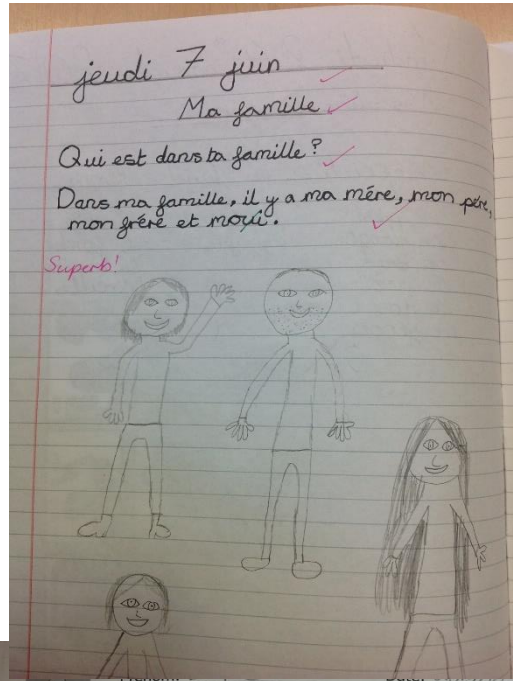 jeudi 7 juin
Ma famille
Qui est dans ta famille?
Dans ma famille, il y a ma mére, mon pére,
mon frére et moi.
Superb!